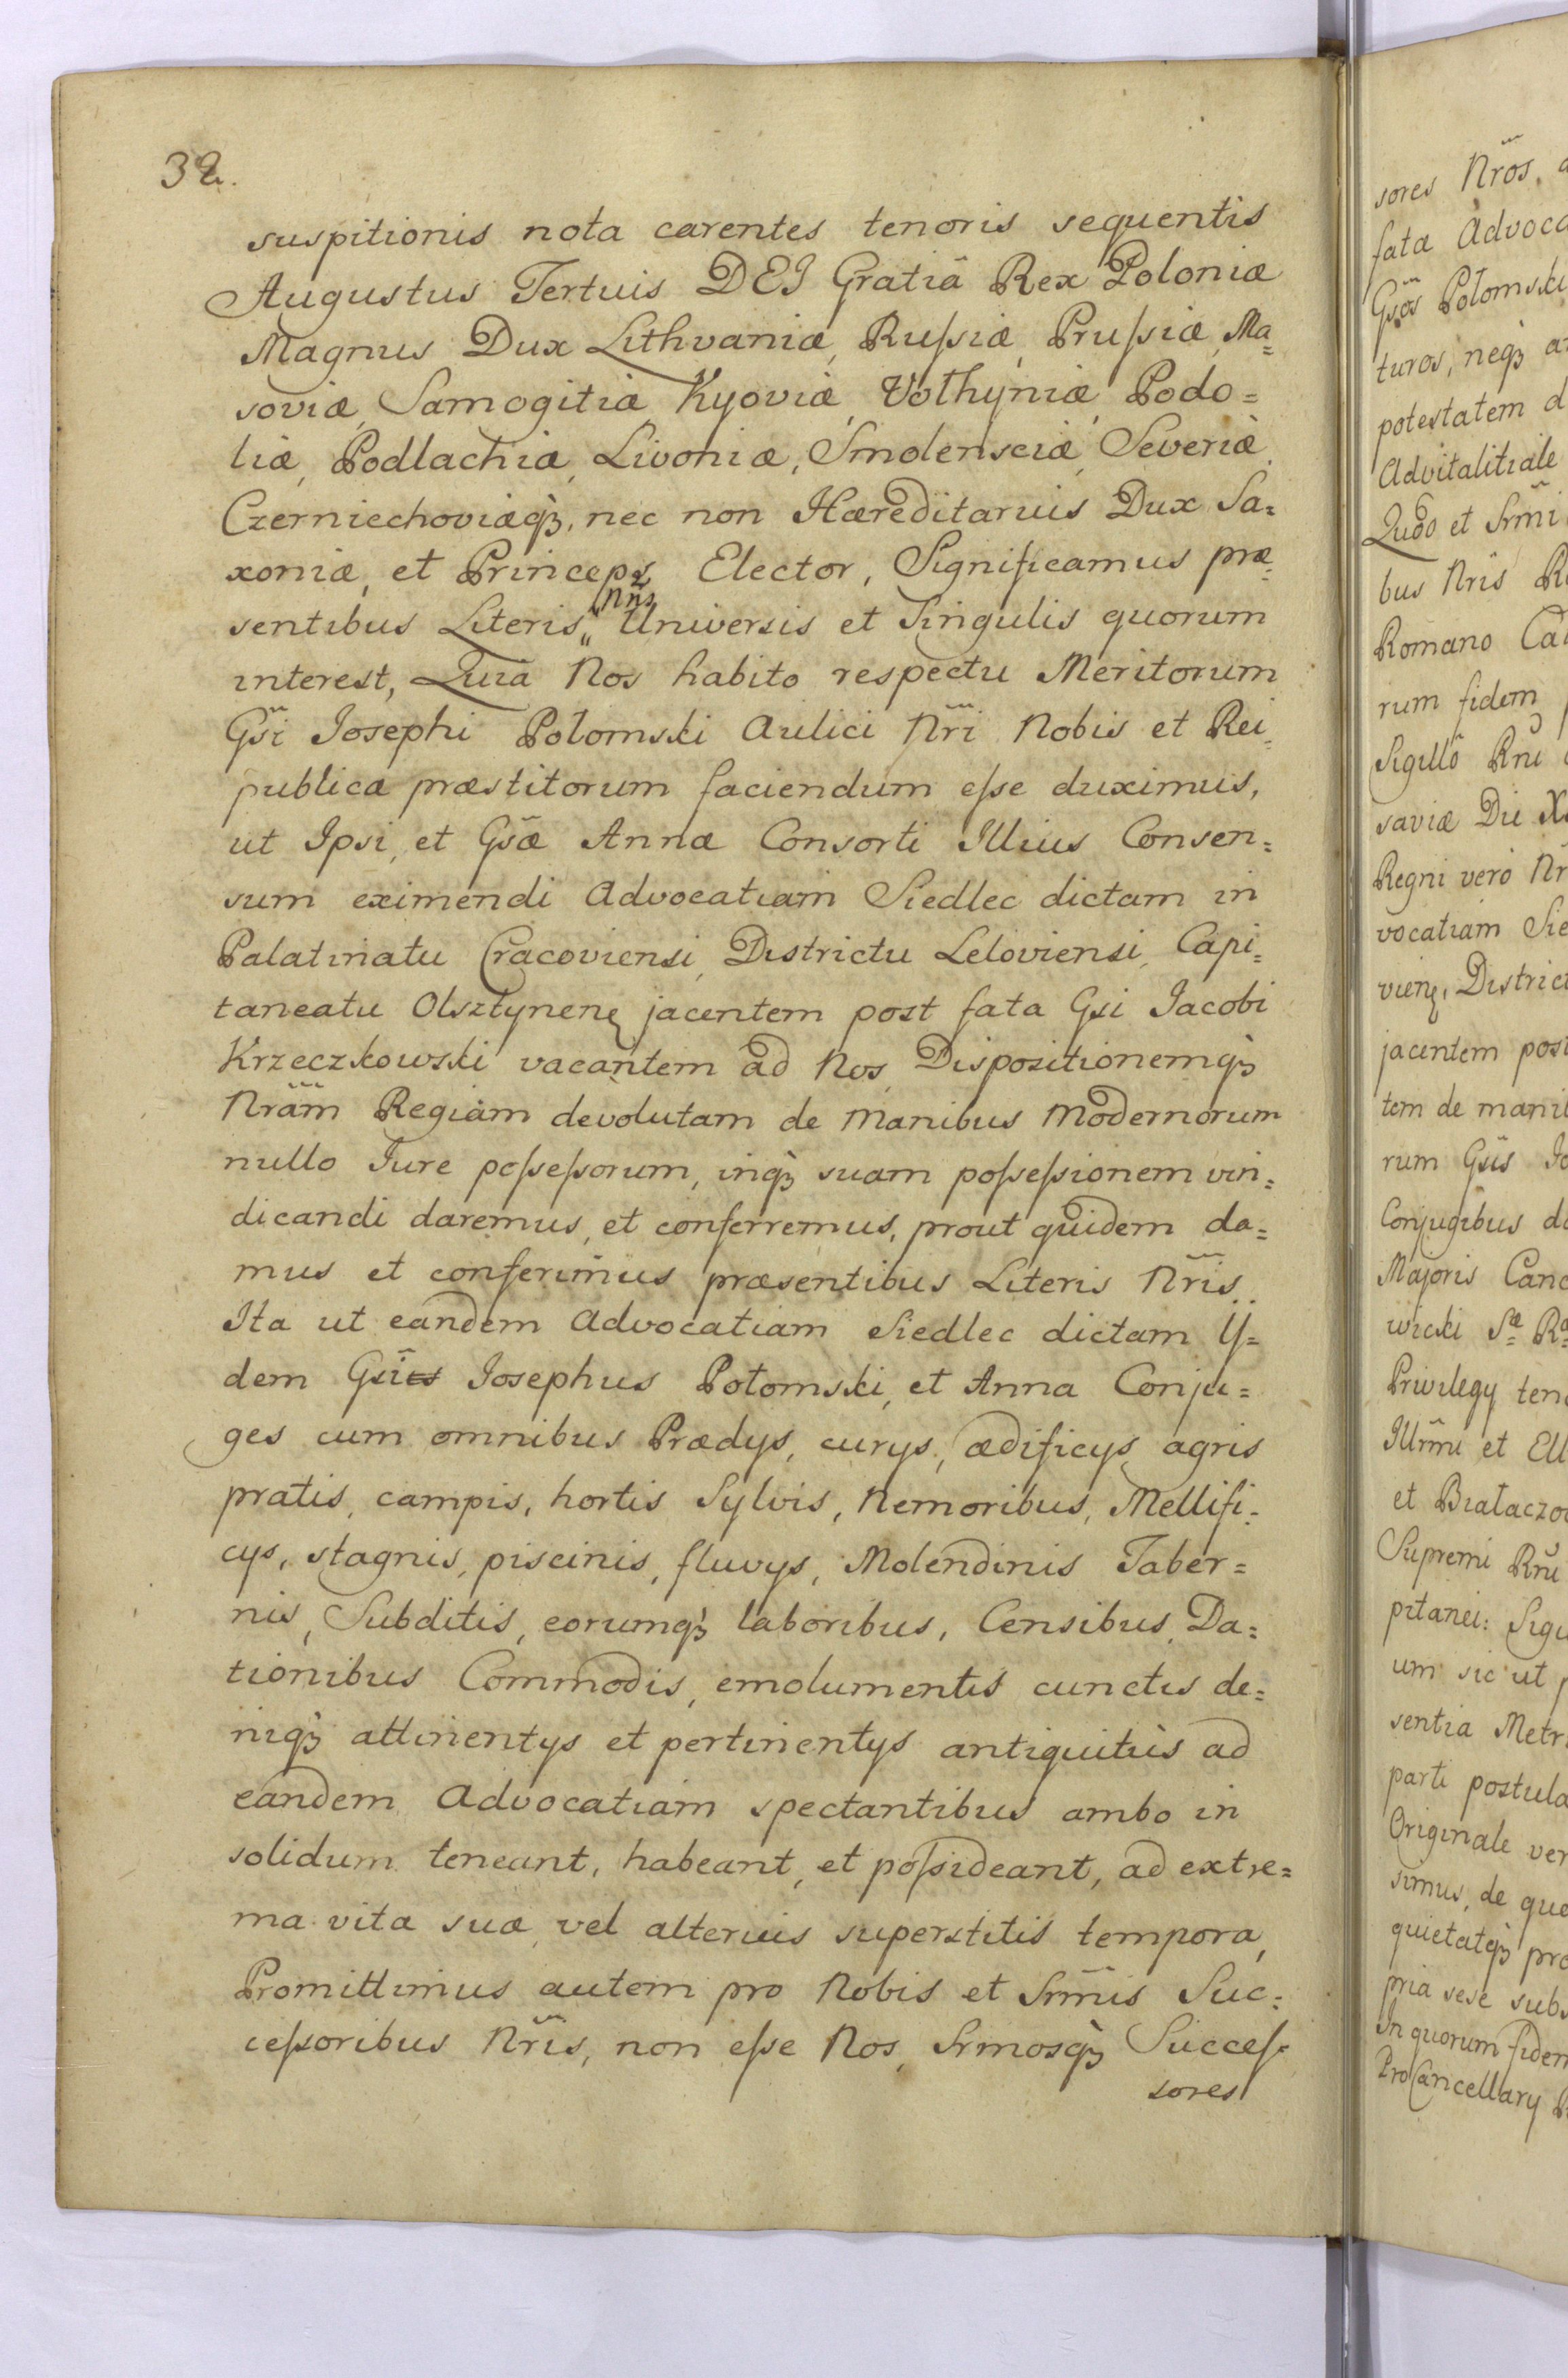 32.
suspitionis nota carentes tenoris sequentis
Augustus Tertuis DEJ Gratiâ Rex Poloniæ
Magnus Dux Lithvaniæ, Ruſsiæ, Pruſsiæ, Ma=
soviæ, Samogitiæ Kyoviæ, Vothyniæ, Podo=
liæ, Podlachiæ, Livoniæ, Smolensciæ, Severiæ,
Czerniechoviæqꝫ, nec non Hæreditarius Dux Sa=
xoniæ, et Princeps Elector, Significamus præ=
sentibus Literis Nrīs Universis et Singulis quorum
interest, Quia Nos habito respectu Meritorum
Gsī Josephi Potomski Aulici Nrī Nobis et Rei=
publicæ præstitorum faciendum eſse duximus,
ut Ipsi, et Gsæ̃ Annæ Consorti Illius Consen=
sum eximendi Advocatiam Siedlec dictam in
Palatinatu Cracoviensi, Districtu Leloviensi, Capi=
taneatu Olsztynenę jacentem post fata Gsi Jacobi
Krzeczkowski vacantem ad Nos, Dispositionemqꝫ
Nrãm Regiam devolutam de Manibus Modernorum
nullo Jure poſseſsorum, inqꝫ suam poſseſsionem vin=
dicandi daremus, et conferremus, prout quidem da=
mus et conferimus præsentibus Literis Nrīs.
Ita ut eandem Advocatiam Siedlec dictam Ij=
dem Gsī Josephus Potomski, et Anna Conju=
ges cum omnibus Prædys, curys, ædificys, agris
pratis, campis, hortis Sylvis, Nemoribus, Mellifi=
cys, stagnis, piscinis, fluvys, Molendinis Taber=
nis, Subditis, eorumqꝫ laboribus, Censibus, Da=
tionibus Commodis, emolumentis cunctis de=
niqꝫ attinentys et pertinentys antiquitùs ad
eandem Advocatiam spectantibus ambo in
solidum teneant, habeant, et poſsideant, ad extre=
ma vitæ suæ, vel alterius superstitis tempora,
Promittimus autem pro Nobis et Srm̃is Suc=
ceſsoribus Nrīs, non eſse Nos, Srmosqꝫ Succeſ=
sores
sores Nrōs,
fata Advoca
Gsōs Potomski
turos, neqꝫ
potestatem d
Advitalitiale
Quod et Srm̃i
bus Nrīs
Romano Ca
rum fidem
Sigillô Rnĩ
saviæ Die
Regni verò Nr
vocatiam Sie
vienę, Distric
jacentem post
tem de mani
rum Gsīs Jo
Conjugibus d
Majoris Canc
wicki
Privilegy ten
Illrm̃i et Ell
et Biataczo
Supremi Rnĩ
pitanei: Sig
um sic ut
sentia Metr
parti postula
Originale ver
simus, de quo
quietatqꝫ pro
pria sese subs
In quorum fidem
ProCancellary